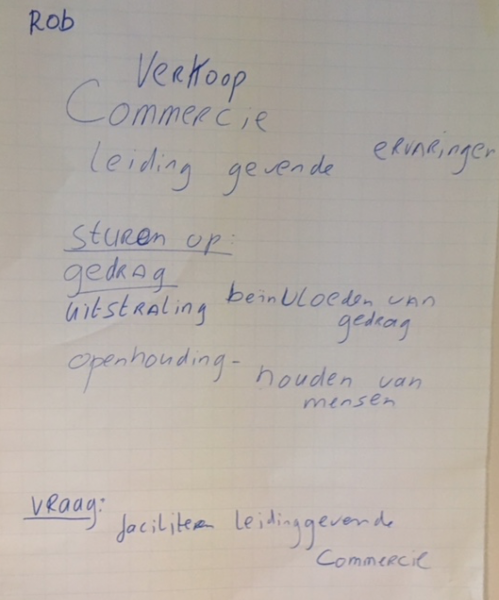 Rob
Verkoop
Commercie
leiding gevende ervaringen
sturen op:
gedrag
uitstraling beinvloeden van
gedrag
openhouding - houden van
mensen
vraag: faciliteren leidinggevende
Commercie